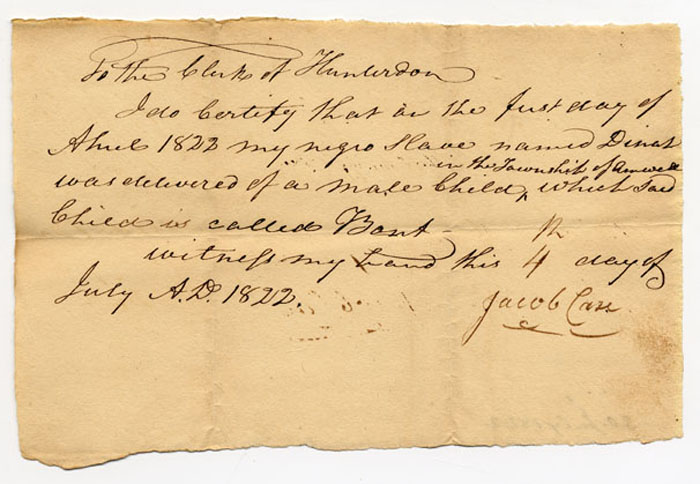 To the Clerk of Hunterdon
I do Certify that on the first day of
Aprel 1822 my negro Slave named Dinah
in the Township of Amwell
was delivered of a male Child, which Said
Child is called
witness my hand this 4 th day of
July A.D. 1822.
Jacob Carr